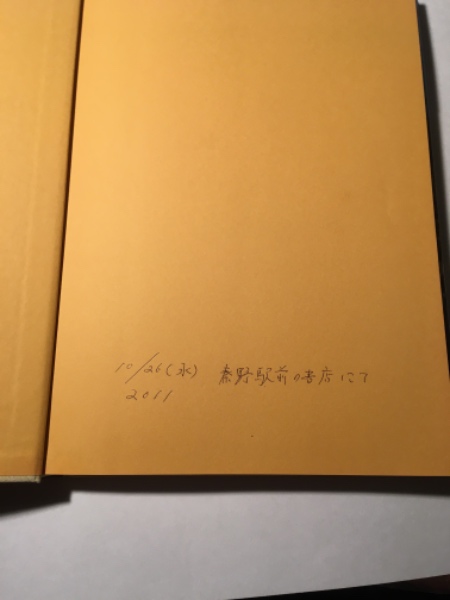 10/26(水) 秦野駅前の書店にて
2011